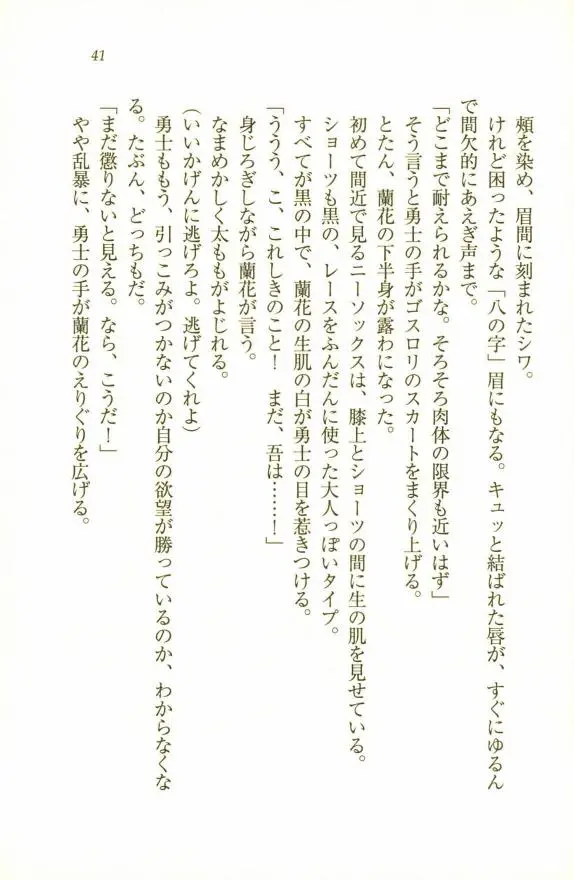 41
頰を染め、眉間に刻まれたシワ。
けれど困ったような「八の字」眉にもなる。キュッと結ばれた唇が、すぐにゆるん
で間欠的にあえぎ声まで。
「どこまで耐えられるかな。そろそろ肉体の限界も近いはず」
そう言うと勇士の手がゴスロリのスカートをまくり上げる。
とたん、蘭花の下半身が露わになった。
初めて間近で見るニーソックスは、膝上とショーツの間に生の肌を見せている。
ショーツも黒の、レースをふんだんに使った大人っぽいタイプ。
すべてが黒の中で、蘭花の生肌の白が勇士の目を惹きつける。
「ううう、こ、これしきのこと!　まだ、吾は……!」
身じろぎしながら蘭花が言う。
なまめかしく太ももがよじれる。
(いいかげんに逃げろよ。逃げてくれよ)
勇士ももう、引っこみがつかないのか自分の欲望が勝っているのか、わからなくな
る。たぶん、どっちもだ。
「まだ懲りないと見える。なら、こうだ!」
やや乱暴に、勇士の手が蘭花のえりぐりを広げる。